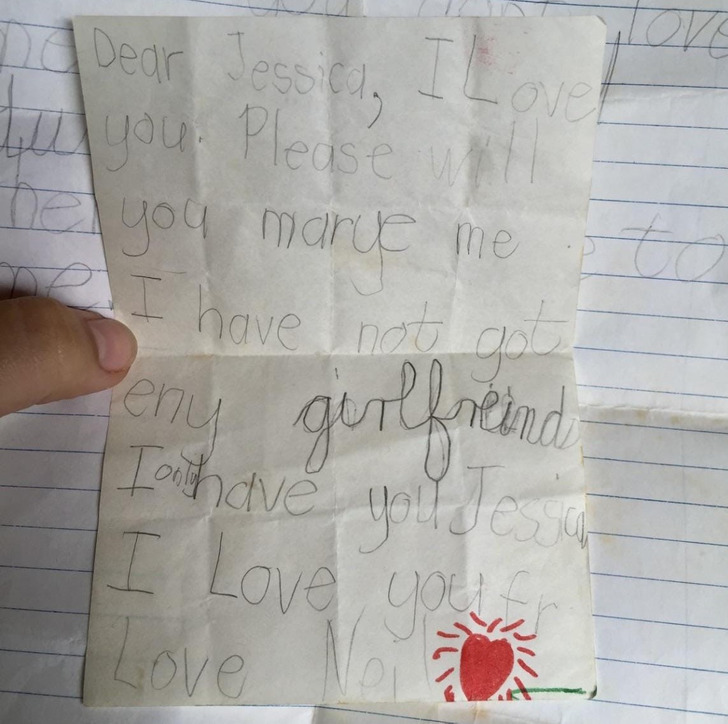 Dear Jessica, I Love
you. Please will
you marye me
I have not got
eny girlfreind
I only have you Jessica
I Love you fr
Love Neil
love
to